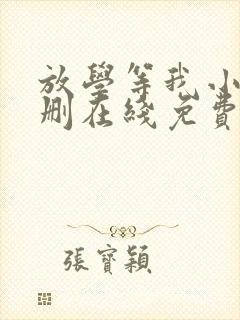 放學等我小
删在綫免費
張寶穎